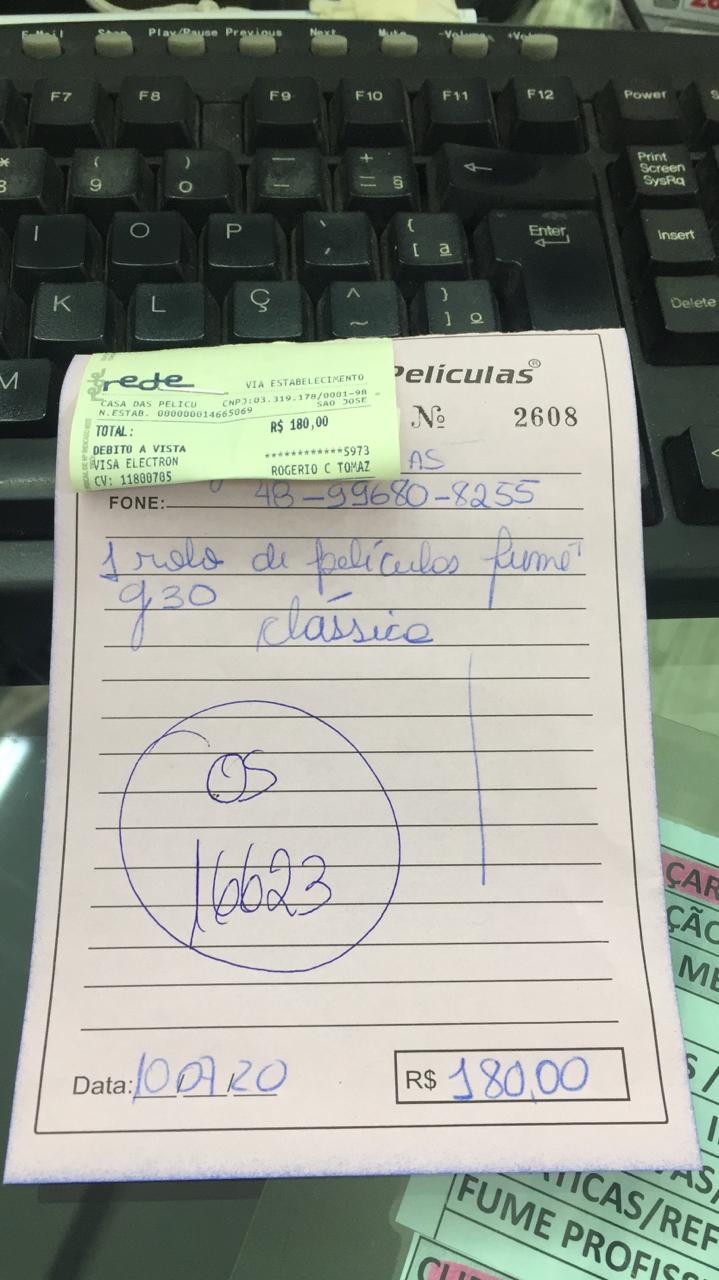 E-Mail Stop Play/Pause Previous Next Mute -Volume +Volume
F7 F8 F9 F10 F11 F12 Power
( ) — + Print Screen SysRq
9 0 — = §
I O P ` { Insert
´ [ ª Enter
K L Ç ^ } Delete
~ ] º
M
rede VIA ESTABELECIMENTO
Películas®
CASA DAS PELICU CNPJ:03.319.178/0001-98
N.ESTAB. 000000014665069 SAO JOSE
Nº 2608
TOTAL: R$ 180,00
DEBITO A VISTA ************5973
VISA ELECTRON ROGERIO C TOMAZ
AS
CV: 11800705
FONE: 48-99680-8255
1 rolo de películas fumê
g30
clássica
OS
16623
Data: 10/07/20 R$ 180,00
ÇAR
ÇÃO
ME
S/
TICAS/REF
FUME PROFISS